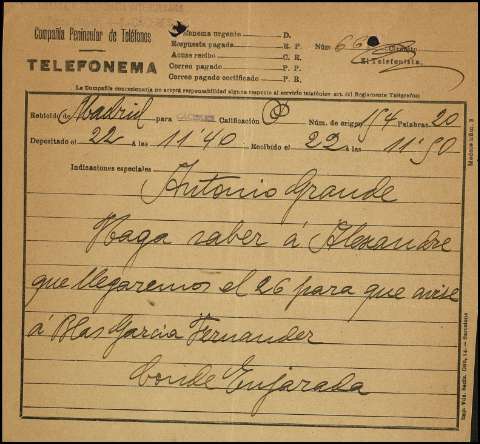 Compañía Peninsular de Teléfonos
TELEFONEMA
Telefonema urgente D.
Respuesta pagada R. P.
Acuse recibo C. R.
Correo pagado P. P.
Correo pagado certificado P. R.
Núm. 66
El Telefonista,
La Compañía concesionaria no acepta responsabilidad alguna respecto al servicio telefónico art. del Reglamento Telégrafos
Recibido de Madrid para CACERES Calificación Núm. de origen 154 Palabras 20
Depositado el 22 A las 11'40 Recibido el 22 A las 11'50
Indicaciones especiales
Antonio Grande
Haga saber á Alexandre
que llegaremos el 26 para que avise
á Blas Garcia Fernander
Conde Enjarada
Modelo núm. 3